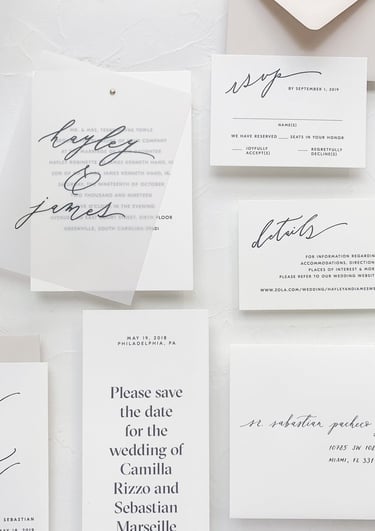 hayley
&
james
MR. & MRS.
COMPANY
TWO THOUSAND NINETEEN
IN THE EVENING
FLOOR
GREENVILLE, SOUTH CAROLINA
rsvp
BY SEPTEMBER 1, 2019
NAME(S)
WE HAVE RESERVED ___ SEATS IN YOUR HONOR
___ JOYFULLY ACCEPT(S)
___ REGRETFULLY DECLINE(S)
details
FOR INFORMATION REGARDING
ACCOMMODATIONS, DIRECTION
PLACES OF INTEREST & MORE
PLEASE REFER TO OUR WEDDING WEBSITE
WWW.ZOLA.COM/WEDDING/HAYLEYANDJAMESWE
MAY 19, 2018
PHILADELPHIA, PA
Please save
the date
for the
wedding of
Camilla
Rizzo and
Sebastian
Marseille
sr. sabastian pacheco
10785 SW 108
MIAMI, FL 331
SEBASTIAN